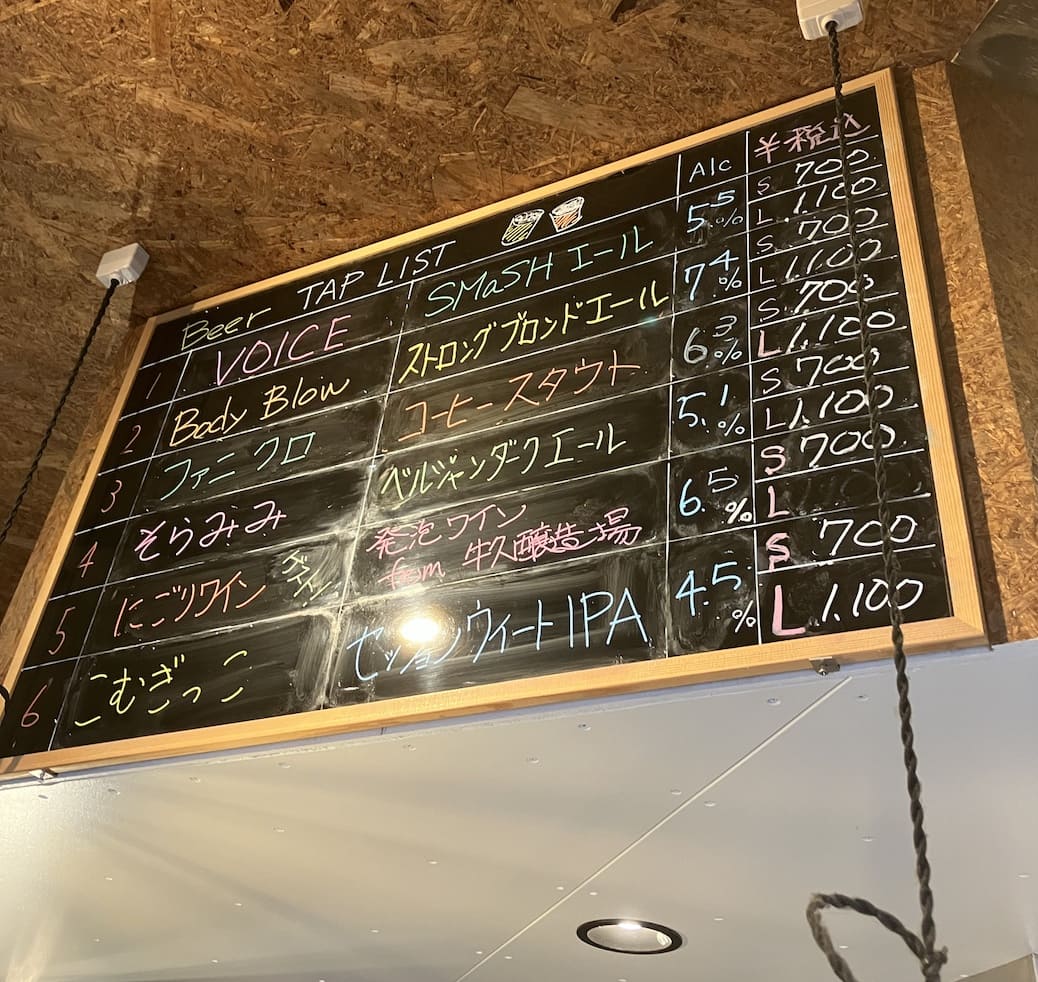 Beer TAP LIST Alc ¥税込
1 VOICE SMaSH エール 5.5% S 700. L 1.100
2 Body Blow ストロングブロンドエール 7.4% S 700 L 1.100
3 ファニクロ コーヒースタウト 6.3% S 700 L 1.100
4 そらみみ ベルジャンダークエール 5.1% S 700 L 1.100
5 にごりワイン 発泡ワイン from 牛久醸造場 6.5% S 700. L
6 こむぎっこ セッションウィートIPA 4.5% S 700 L 1.100